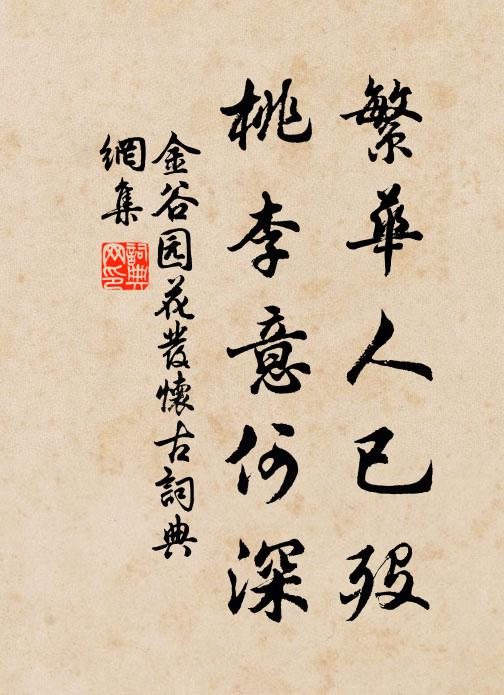 繁華人已歿
桃李意何深
金谷园花發懷古詞典
網集
詞典网印